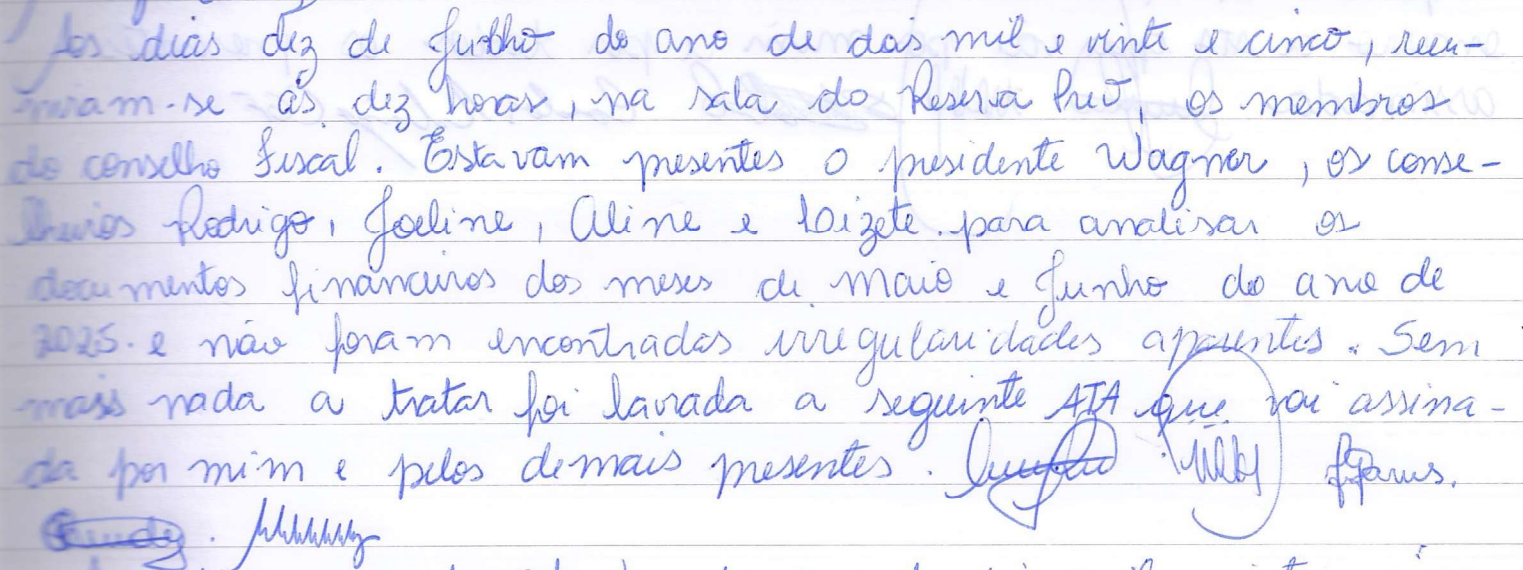 Aos dias dez de Julho do ano de dois mil e vinte e cinco, reu-
niram-se às dez horas, na sala do Reserva Prev, os membros
do conselho Fiscal. Estavam presentes o presidente Wagner, os conse-
lheiros Rodrigo, Joeline, Aline e Dizete. para analisar os
documentos financeiros dos meses de Maio e Junho do ano de
2025. e não foram encontradas irregularidades aparentes. Sem
mais nada a tratar foi lavrada a seguinte ATA que vai assina-
da por mim e pelos demais presentes.